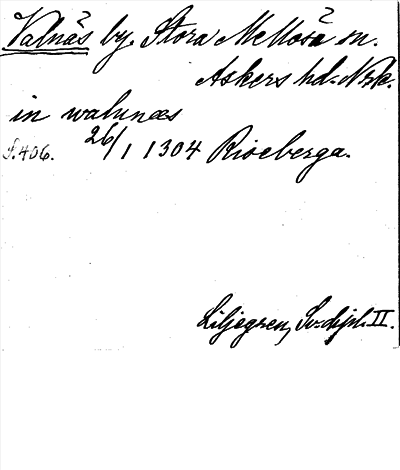 Valnäs by. Stora Mellösa sn.
Askers hd. Nrke.
in walunæs
S. 406. 26/1 1304 Riseberga.
Liljegren, Sv. dipl. II.